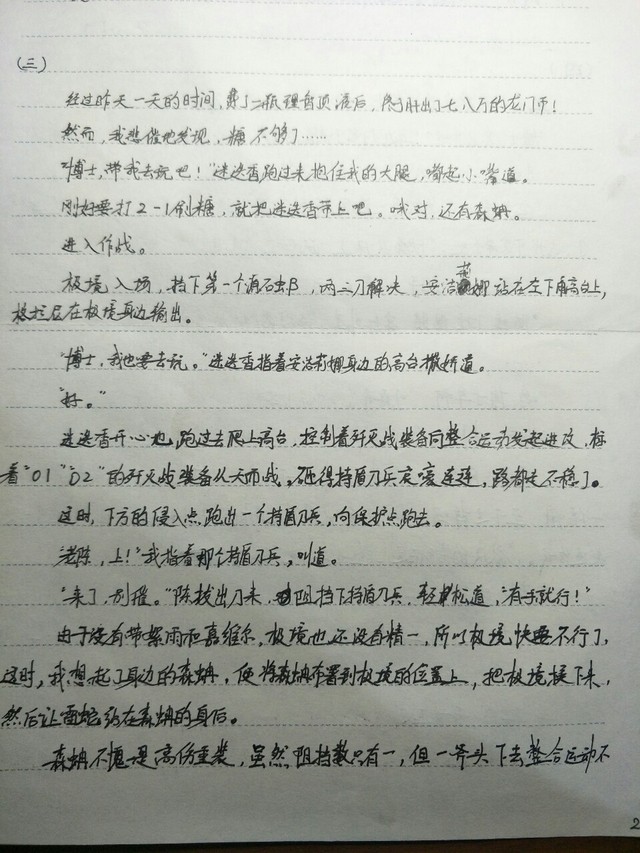 (三)
经过昨天一天的时间，费了二瓶理智顶液后，终于肝出了七八万的龙门币！
然而，我悲催地发现，糖不够了……
"博士，带我去玩吧！"迷迭香跑过来抱住我的大腿，嘟起小嘴道。
刚好要打2-1刷糖，就把迷迭香带上吧。哦对，还有森蚺。
进入作战。
极境入场，挡下第一个源石虫β，两三刀解决，安洁莉娜站在左下角高台上，
被拦在极境身边输出。
"博士，我也要去玩。"迷迭香指着安洁莉娜身边的高台撒娇道。
"好。"
迷迭香开心地跑过去爬上高台，控制着歼灭战装备向整合运动发起进攻，标
着"01""02"的歼灭战装备从天而战，砸得持盾刀兵哀嚎连连，路都走不稳了。
这时，下方的侵入点跑出一个持盾刀兵，向保护点跑去。
"老陈，上！"我指着那个持盾刀兵，叫道。
"来了，别催。"陈拔出刀来，阻挡下持盾刀兵，轻松道，"有手就行！"
由于没有带絮雨和嘉维尔，极境也还没有精一，所以极境快要不行了，
这时，我想起了身边的森蚺，便将森蚺布置到极境的位置上，把极境换下来，
然后让雷蛇站在森蚺的身后。
森蚺不愧是高伤重装，虽然阻挡数只有一，但一斧头下去整合运动不
2